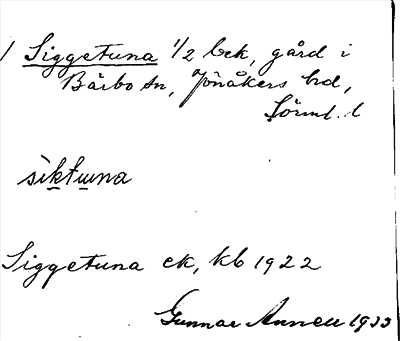 / Siggetuna 1/2 bek, gård i
Bärbo sn, Jönåkers hd,
Sörml. l
sìktuna
Siggetuna ek, kb 1922
Gunnar Annell 1933